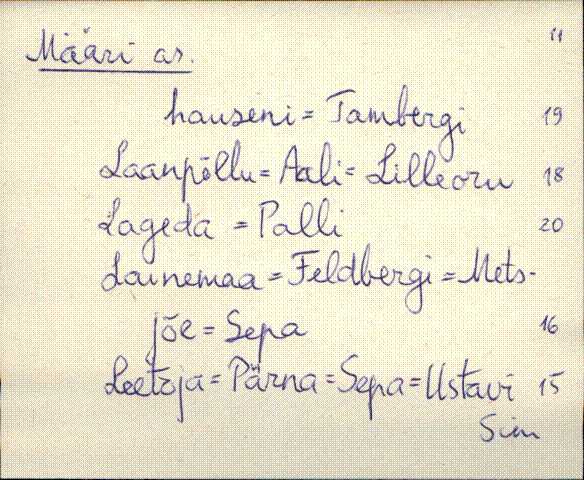 11
Määri as.
hauseni = Tambergi 19
Laanpõllu = Aali = Lilleoru 18
Lageda = Palli 20
Lainemaa = Feldbergi = Mets-
jõe = Sepa 16
Leetoja = Pärna = Sepa = Ustavi 15
Sim